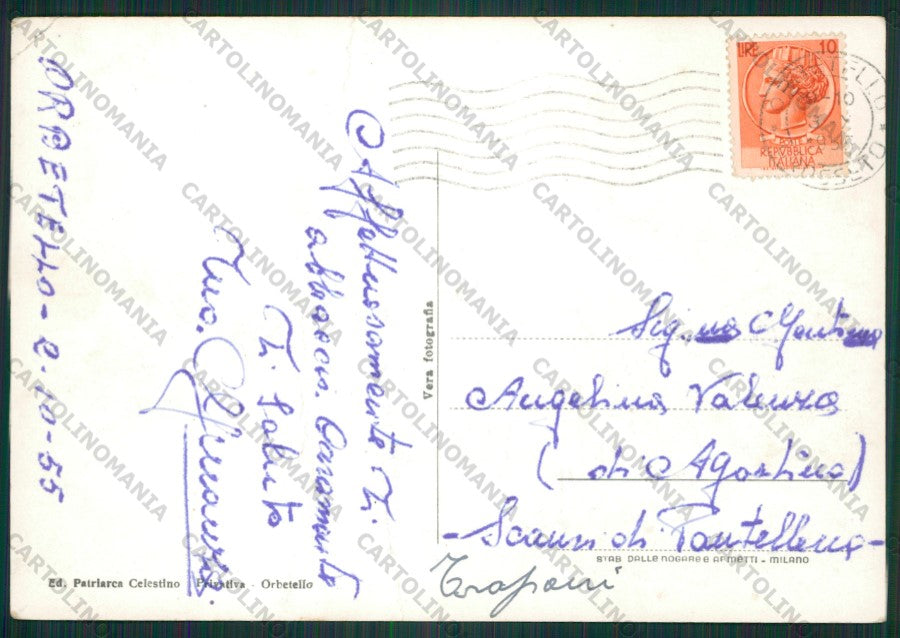 ORBETELLO - 2-10-55
Affettuosamente Ti
abbraccio. Caramente
Ti Saluto
Tuo
Vera fotografia
LIRE 10
REPVBBLICA
ITALIANA
Sig.na
Angelina Valenza
(di Agostino)
- Scauri di Pantelleria -
Trapani
STAB. DALLE NOGARE E ARMETTI - MILANO
Ed. Patriarca Celestino - Privativa - Orbetello
CARTOLINOMANIA